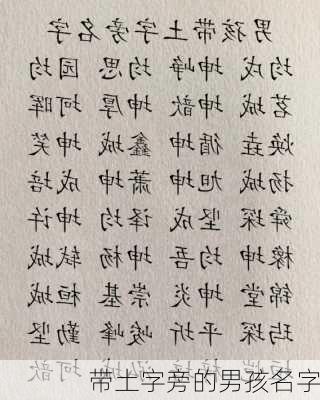 男孩带土字旁名字
均成 坤峰 均思 园均
茗城 坤歆 坤厚 坷晖
焕垚 循坤 鑫城 坤笑
扬城 旭坤 萧坤 成培
舜琛 坚成 译均 坤许
橡坤 均吾 坤杨 轼城
锦堂 坤炎 崇基 桓城
琛 平圻 峻峰 勤坚
坷歆
带土字旁的男孩名字